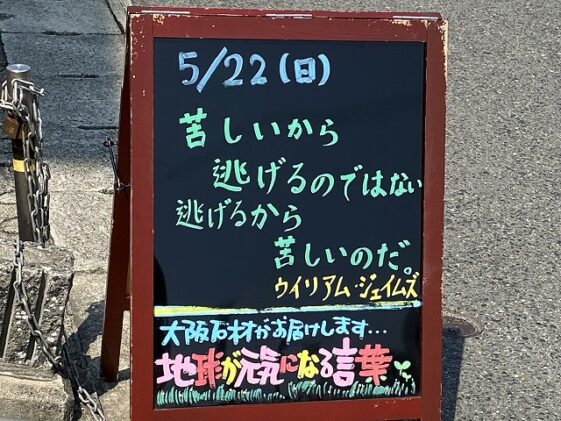 5/22(日)
苦しいから
逃げるのではない
逃げるから
苦しいのだ。
ウイリアム・ジェイムズ
大阪石材がお届けします...
地球が元気になる言葉